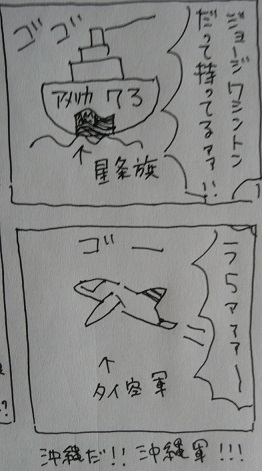 ジョージワシントン
だって持ってるァァ!!
ゴゴ
アメリカ 73
↑
星条旗
うらァァァー
ゴー
↑
タイ空軍
沖縄だ!! 沖縄軍!!!